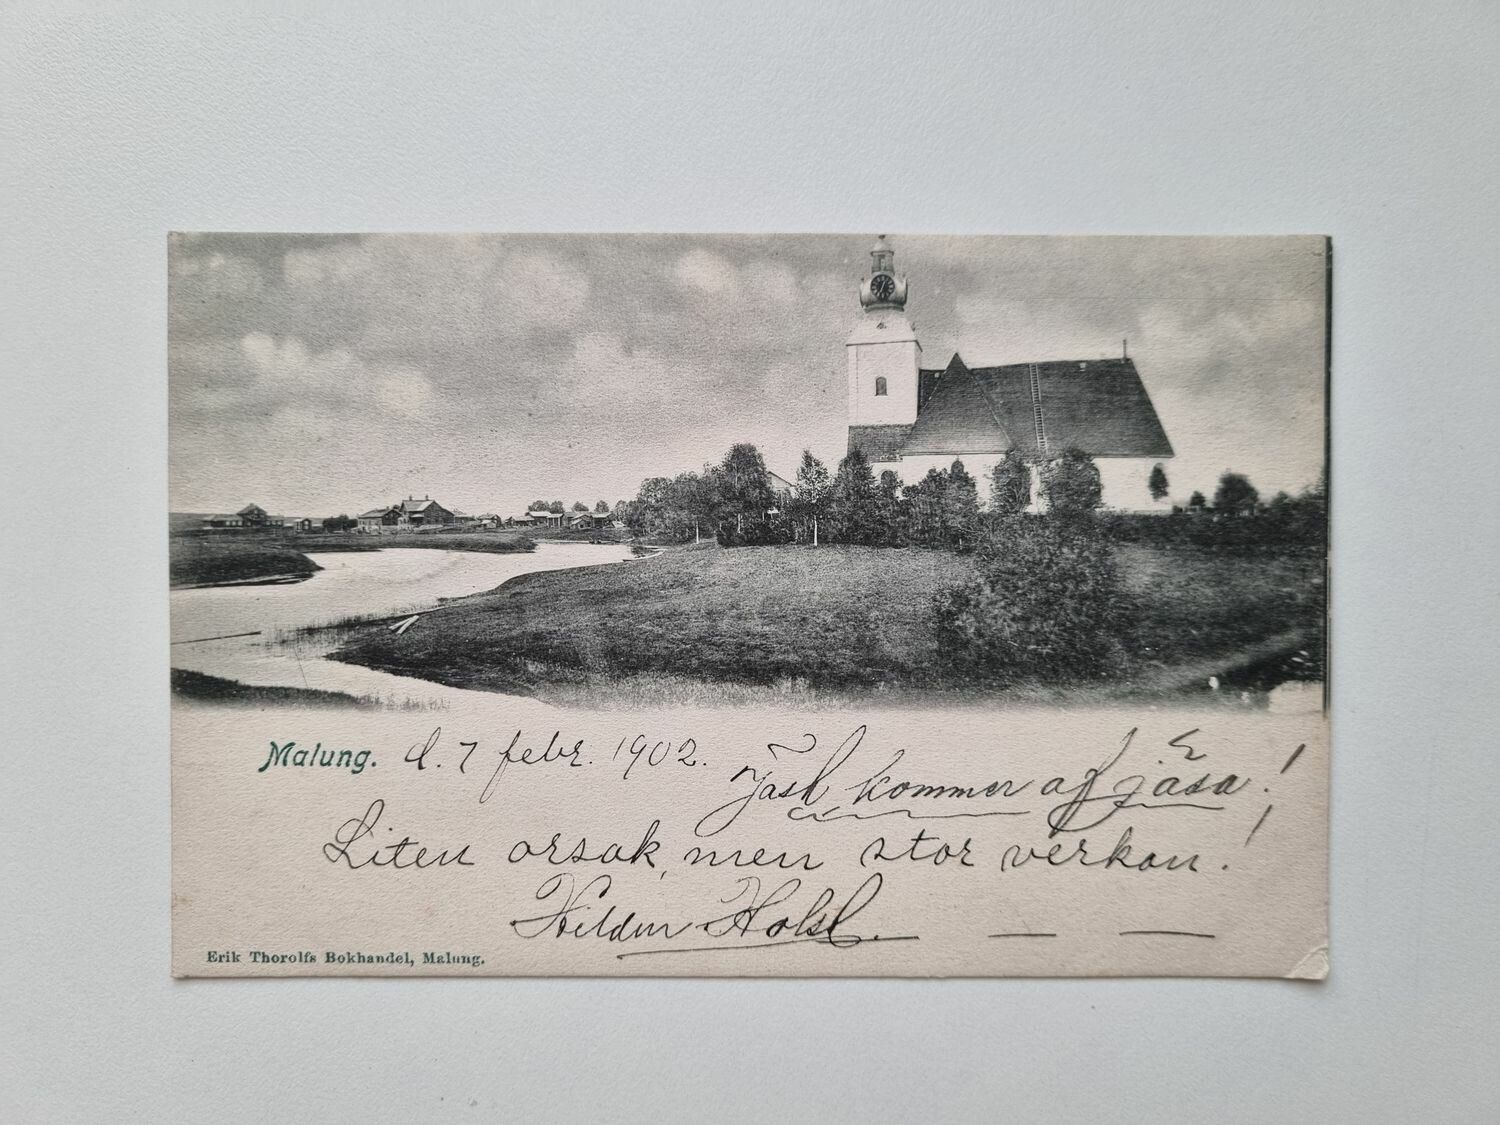 Malung. d. 7 febr. 1902.
Jäsk kommer af jäsa!
Liten orsak, men stor verkan!
Hildur Hols
Erik Thorolfs Bokhandel, Malung.